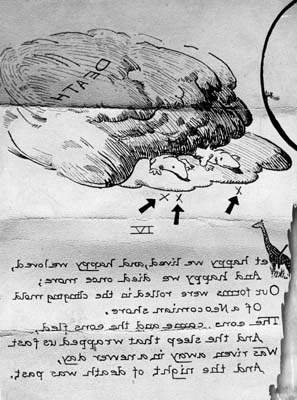 DEATH
x x x
IV
et happy we lived, and happy we loved,
And happy we died once more;
Our forms were rolled in the clinging mold
Of a Neocomian shore.
The eons came and the eons fled,
And the sleep that wrapped us fast
Was riven away in a newer day,
And the night of death was past.